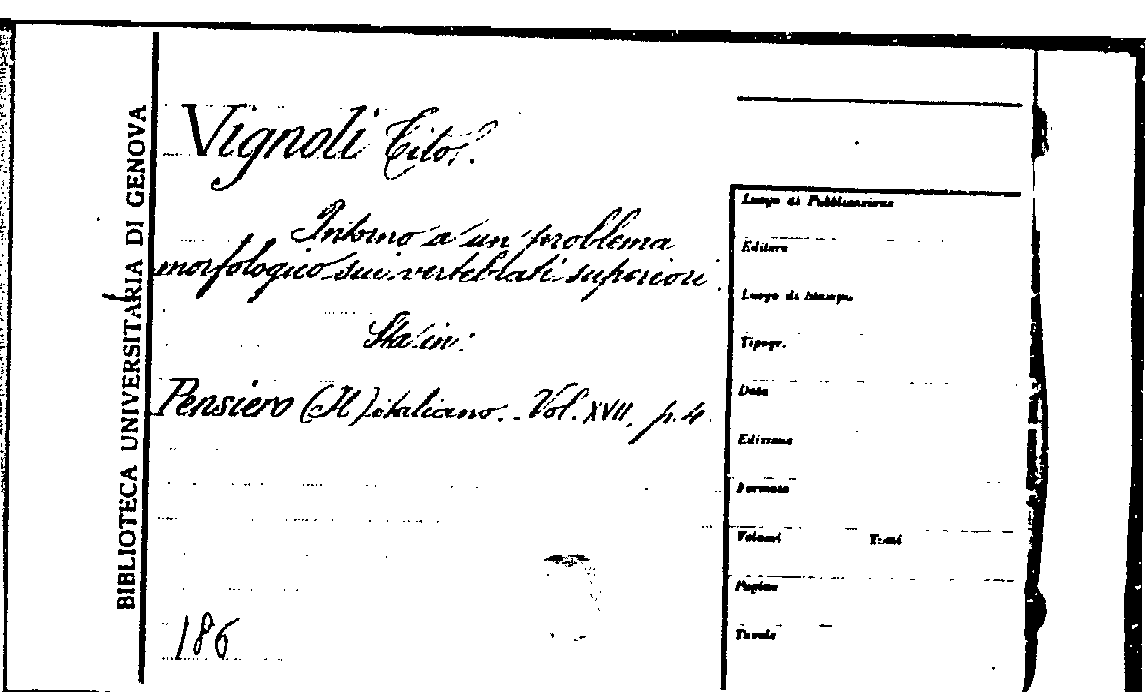 BIBLIOTECA UNIVERSITARIA DI GENOVA
Vignoli Tito.
Intorno a un problema
morfologico sui vertebrati superiori.
Sta in:
Pensiero (Il) italiano. Vol. XVII, p. 4.
186
Luogo di Pubblicazione
Editore
Luogo di Stampa
Tipogr.
Data
Edizione
Formato
Volumi Tomi
Pagine
Tavole